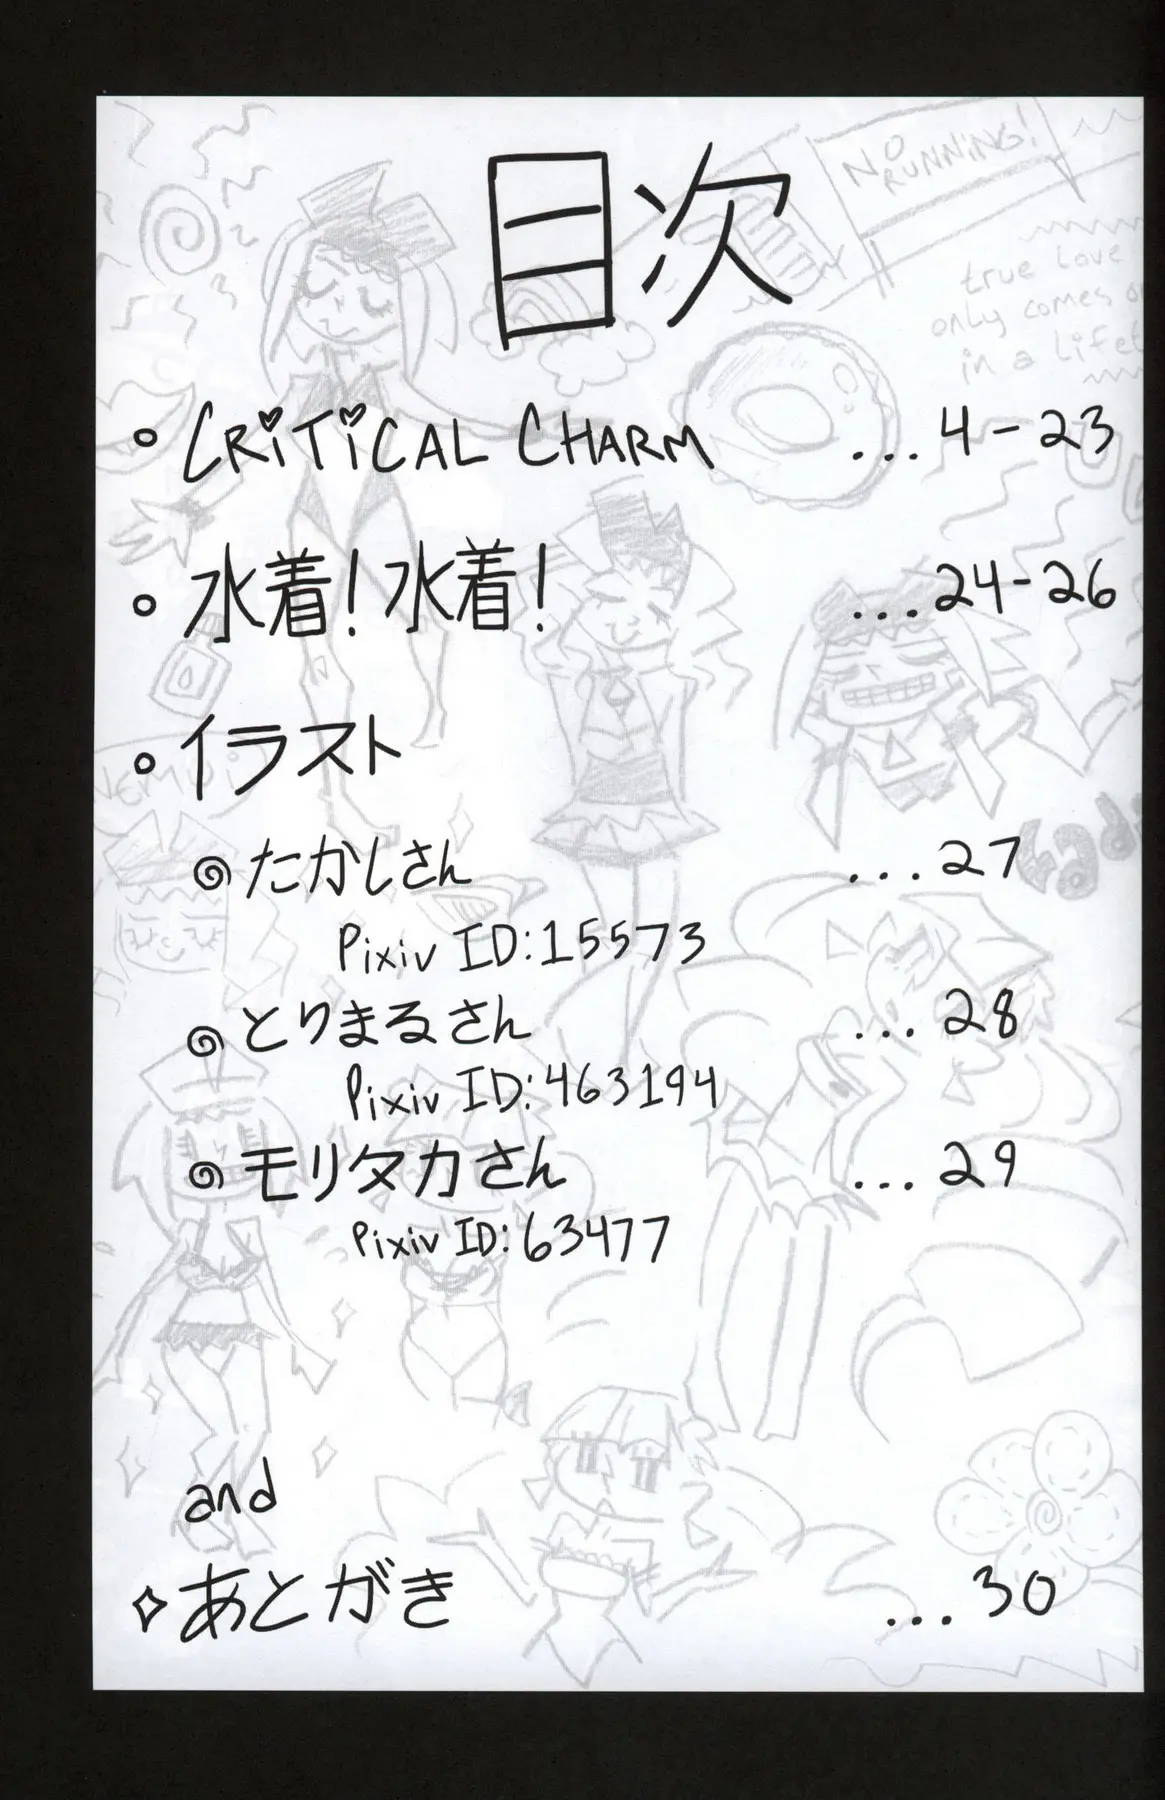 NO
RUNNING!
true love
only comes
in a
目次
CRITICAL CHARM ...4-23
水着!水着! ...24-26
イラスト
たかしさん ...27
Pixiv ID:15573
とりまるさん ...28
Pixiv ID:463194
モリタカさん ...29
Pixiv ID:63477
and
あとがき ...30